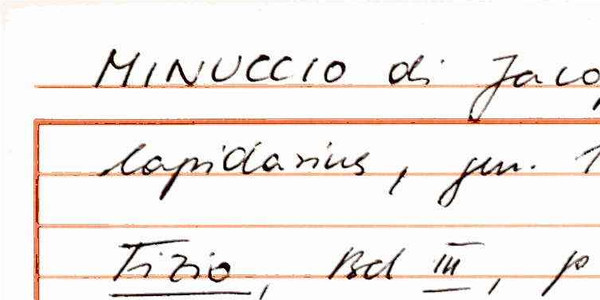 MINUCCIO di Jaco
lapidarius, gen. 1
Tizio, Bd III, p